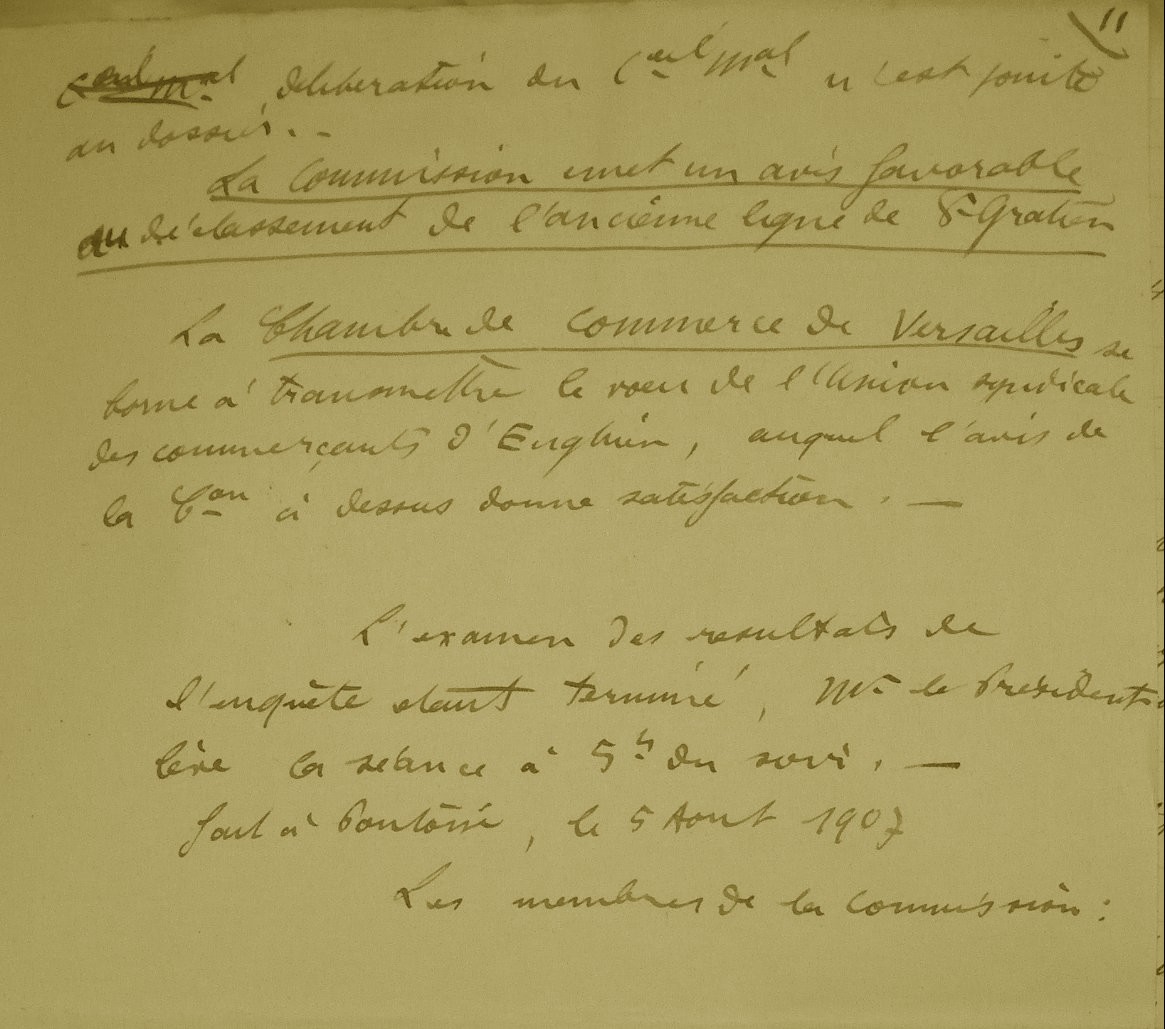 11
Ceil Mal délibération du Ceil Mal n'est jointe
au dossier. -
La Commission emet un avis favorable
au déclassement de l'ancienne ligne de St Gratien
La Chambre de Commerce de Versailles se
borne à transmettre le voeu de l'Union syndicale
des commerçants d'Enghien, auquel l'avis de
la Con ci dessus donne satisfaction. —
L'examen des resultats de
l'enquête etant terminé, Mr le Président
lève la séance à 5h du soir. —
fait à Pontoise, le 5 Aout 1907
Les membres de la Commission :